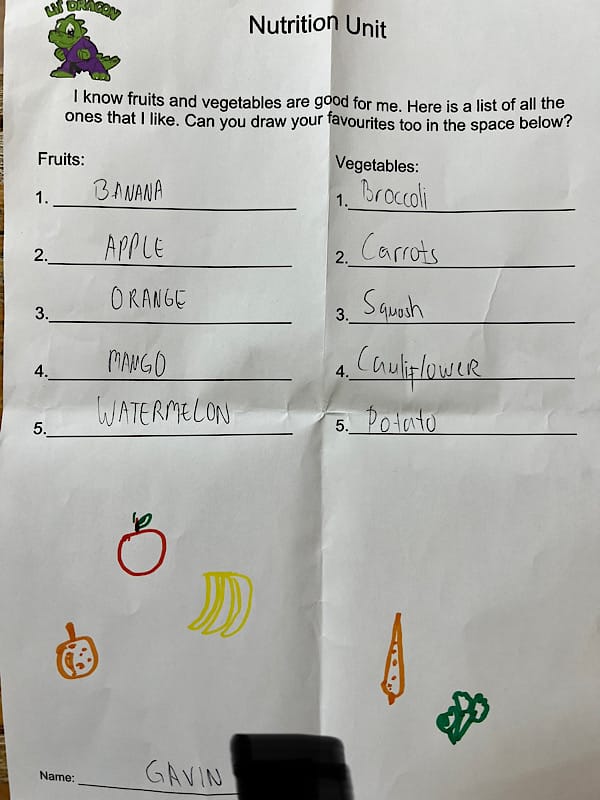 LIL' DRAGON
Nutrition Unit
I know fruits and vegetables are good for me. Here is a list of all the
ones that I like. Can you draw your favourites too in the space below?
Fruits:
1. BANANA
2. APPLE
3. ORANGE
4. MANGO
5. WATERMELON
Vegetables:
1. Broccoli
2. Carrots
3. Squash
4. Cauliflower
5. Potato
Name: GAVIN